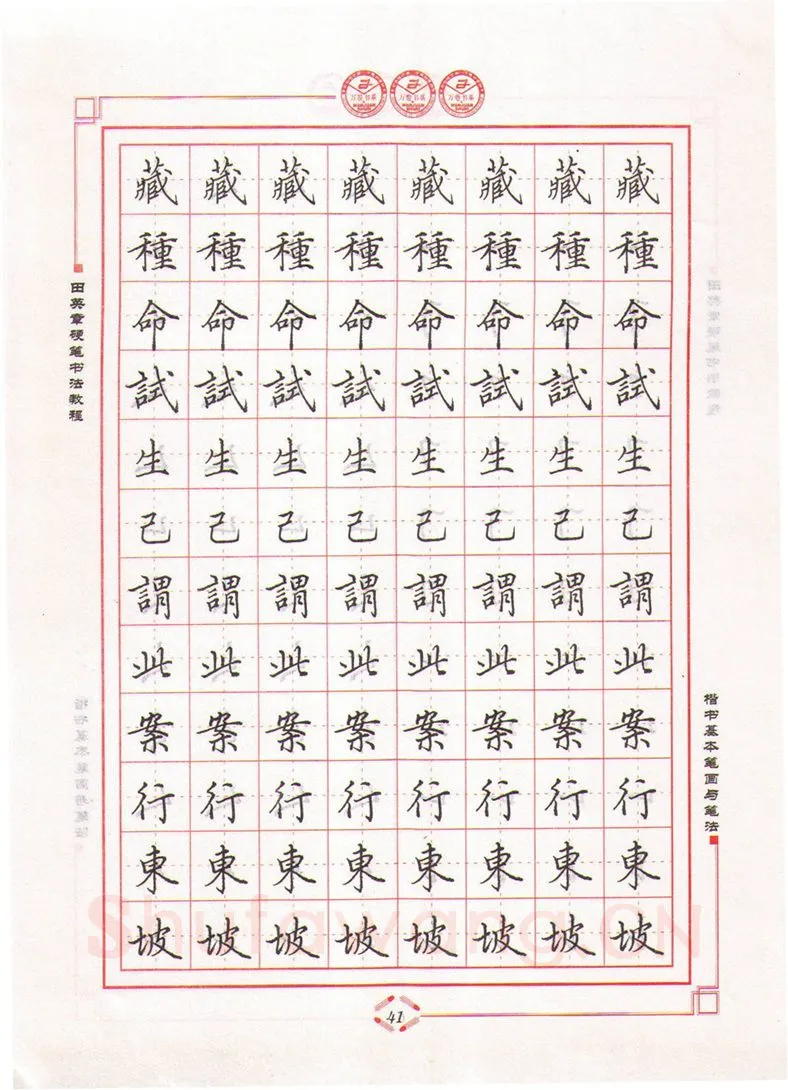 万卷书系 万卷书系 万卷书系
田英章硬笔书法教程
藏藏藏藏藏藏藏藏
種種種種種種種種
命命命命命命命命
試試試試試試試試
生生生生生生生生
己己己己己己己己
謂謂謂謂謂謂謂謂
此此此此此此此此
案案案案案案案案
行行行行行行行行
東東東東東東東東
坡坡坡坡坡坡坡坡
楷书基本笔画与笔法
Shufawang.CN
41